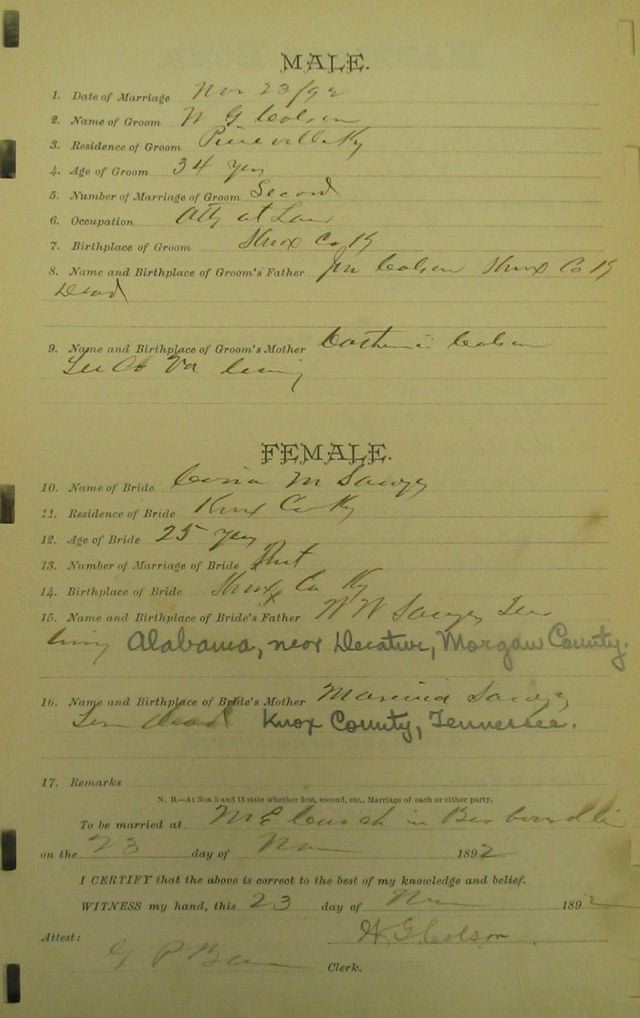 MALE.
1. Date of Marriage Nov 23/92
2. Name of Groom W G Colson
3. Residence of Groom Pineville Ky
4. Age of Groom 34 yrs
5. Number of Marriage of Groom Second
6. Occupation Atty at Law
7. Birthplace of Groom Knox Co K
8. Name and Birthplace of Groom's Father Jno Colson Knox Co K
Dead
9. Name and Birthplace of Groom's Mother Catherine Colson
Lee Co Va living
FEMALE.
10. Name of Bride M Sawyer
11. Residence of Bride Knox Co Ky
12. Age of Bride 25 yrs
13. Number of Marriage of Bride first
14. Birthplace of Bride Knox Co Ky
15. Name and Birthplace of Bride's Father W W Sawyer Ten
living Alabama, near Decatur, Morgan County.
16. Name and Birthplace of Bride's Mother Sawyer
Ten dead Knox County, Tennessee.
17. Remarks
N. B.—At Nos. 5 and 13 state whether first, second, etc., Marriage of each or either party.
To be married at M E Church in
on the 23 day of Nov 1892
I CERTIFY that the above is correct to the best of my knowledge and belief.
WITNESS my hand, this 23 day of Nov 1892
Attest: W G Colson
G P Clerk.